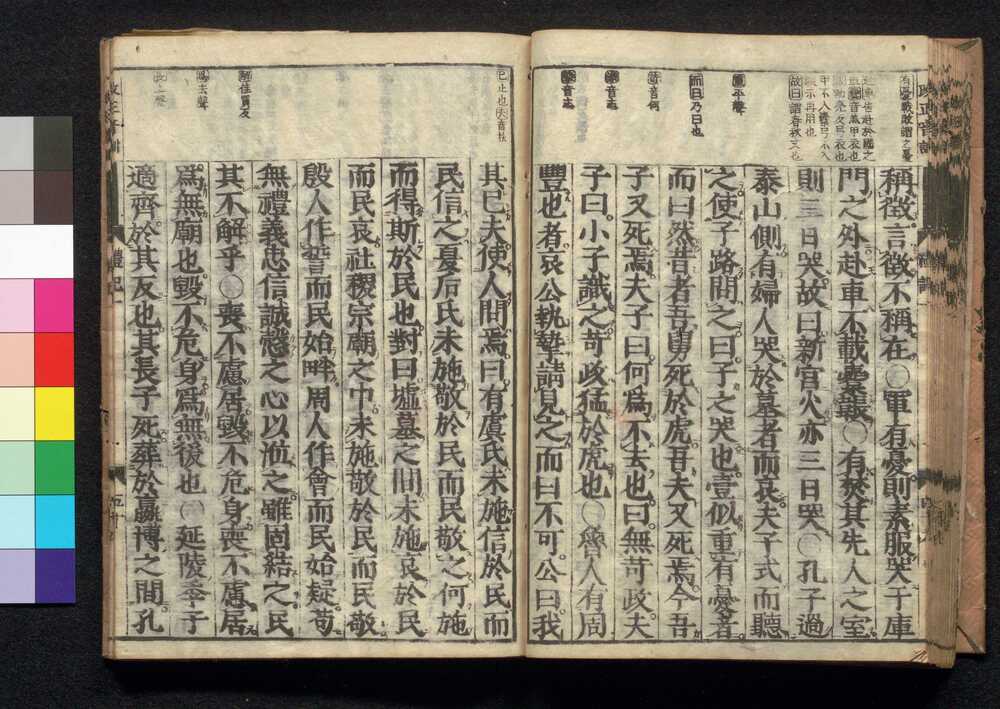 稱徵言徵不稱在○軍有憂則素服哭于庫
門之外赴車不載櫜韔○有焚其先人之室
則三日哭故曰新宮火亦三日哭○孔子過
泰山側有婦人哭於墓者而哀夫子式而聽
之使子路問之曰子之哭也壹似重有憂者
而曰然昔者吾舅死於虎吾夫又死焉今吾
子又死焉夫子曰何爲不去也曰無苛政夫
子曰小子識之苛政猛於虎也○魯人有周
豐也者哀公執摯請見之而曰不可公曰我
其已夫使人問焉曰有虞氏未施信於民而
民信之夏后氏未施敬於民而民敬之何施
而得斯於民也對曰墟墓之間未施哀於民
而民哀社稷宗廟之中未施敬於民而民敬
殷人作誓而民始畔周人作會而民始疑苟
無禮義忠信誠慤之心以涖之雖固結之民
其不解乎○喪不慮居毀不危身喪不慮居
爲無廟也毀不危身爲無後也○延陵季子
適齊於其反也其長子死葬於嬴博之間孔
重平聲
而曰乃曰也
苛音何
識音志
摯音志
已止也
解佳買反
爲去聲